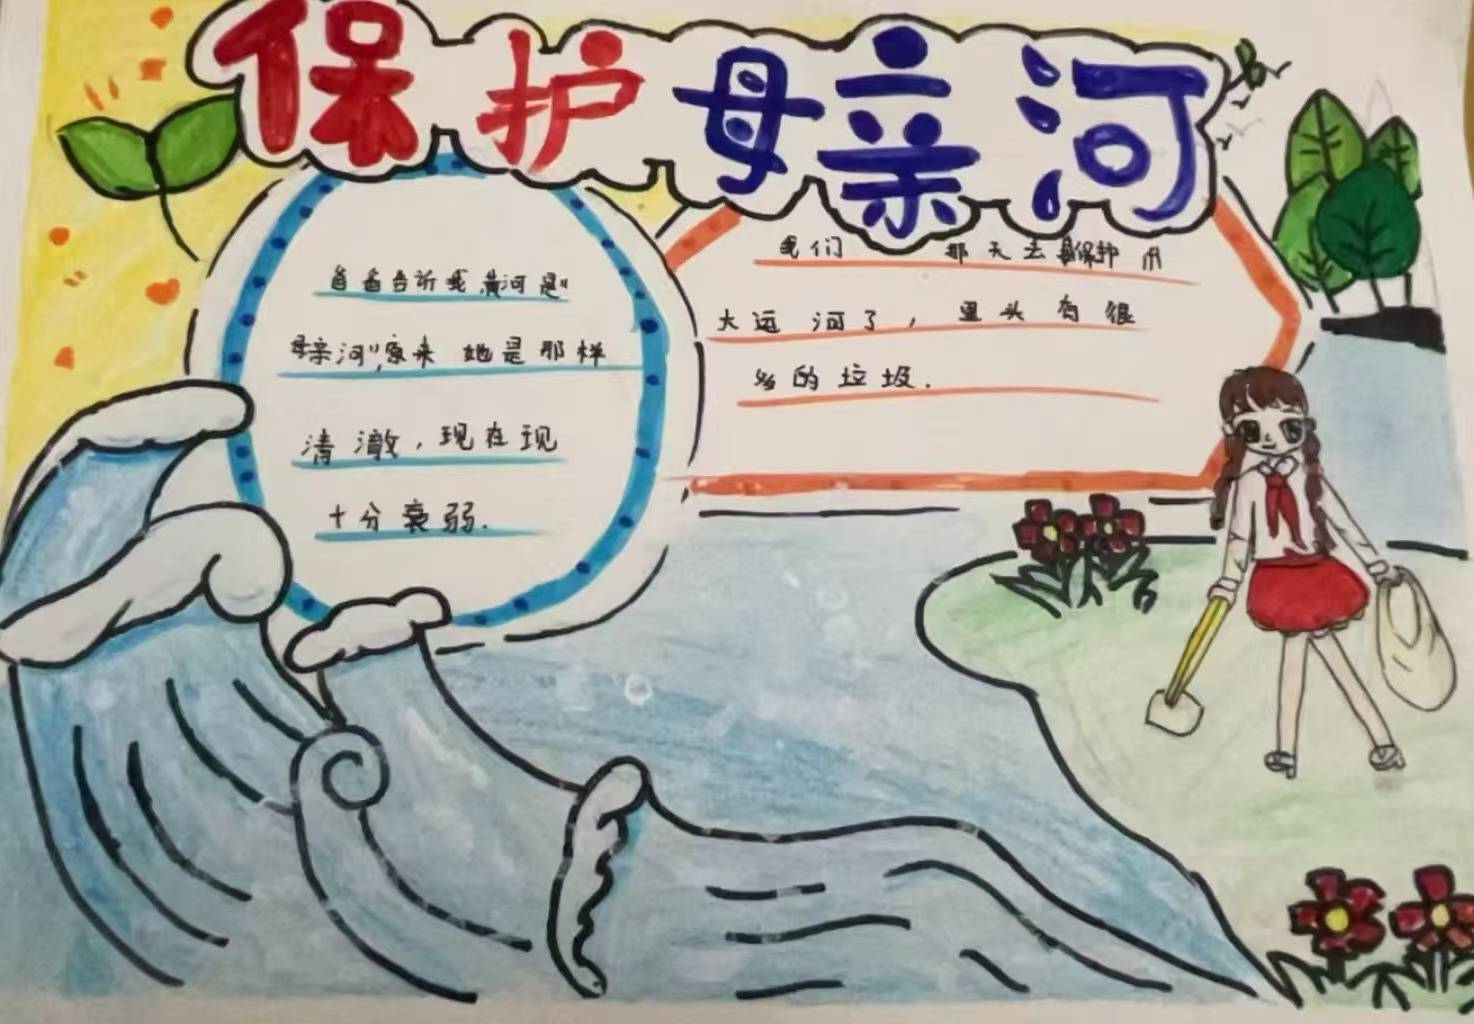 保护母亲河
爸爸告诉我,黄河是"
母亲河",原来 她是那样
清澈,现在现
十分衰弱.
我们 那天去 保护
大运河了,里头有很
多的垃圾.